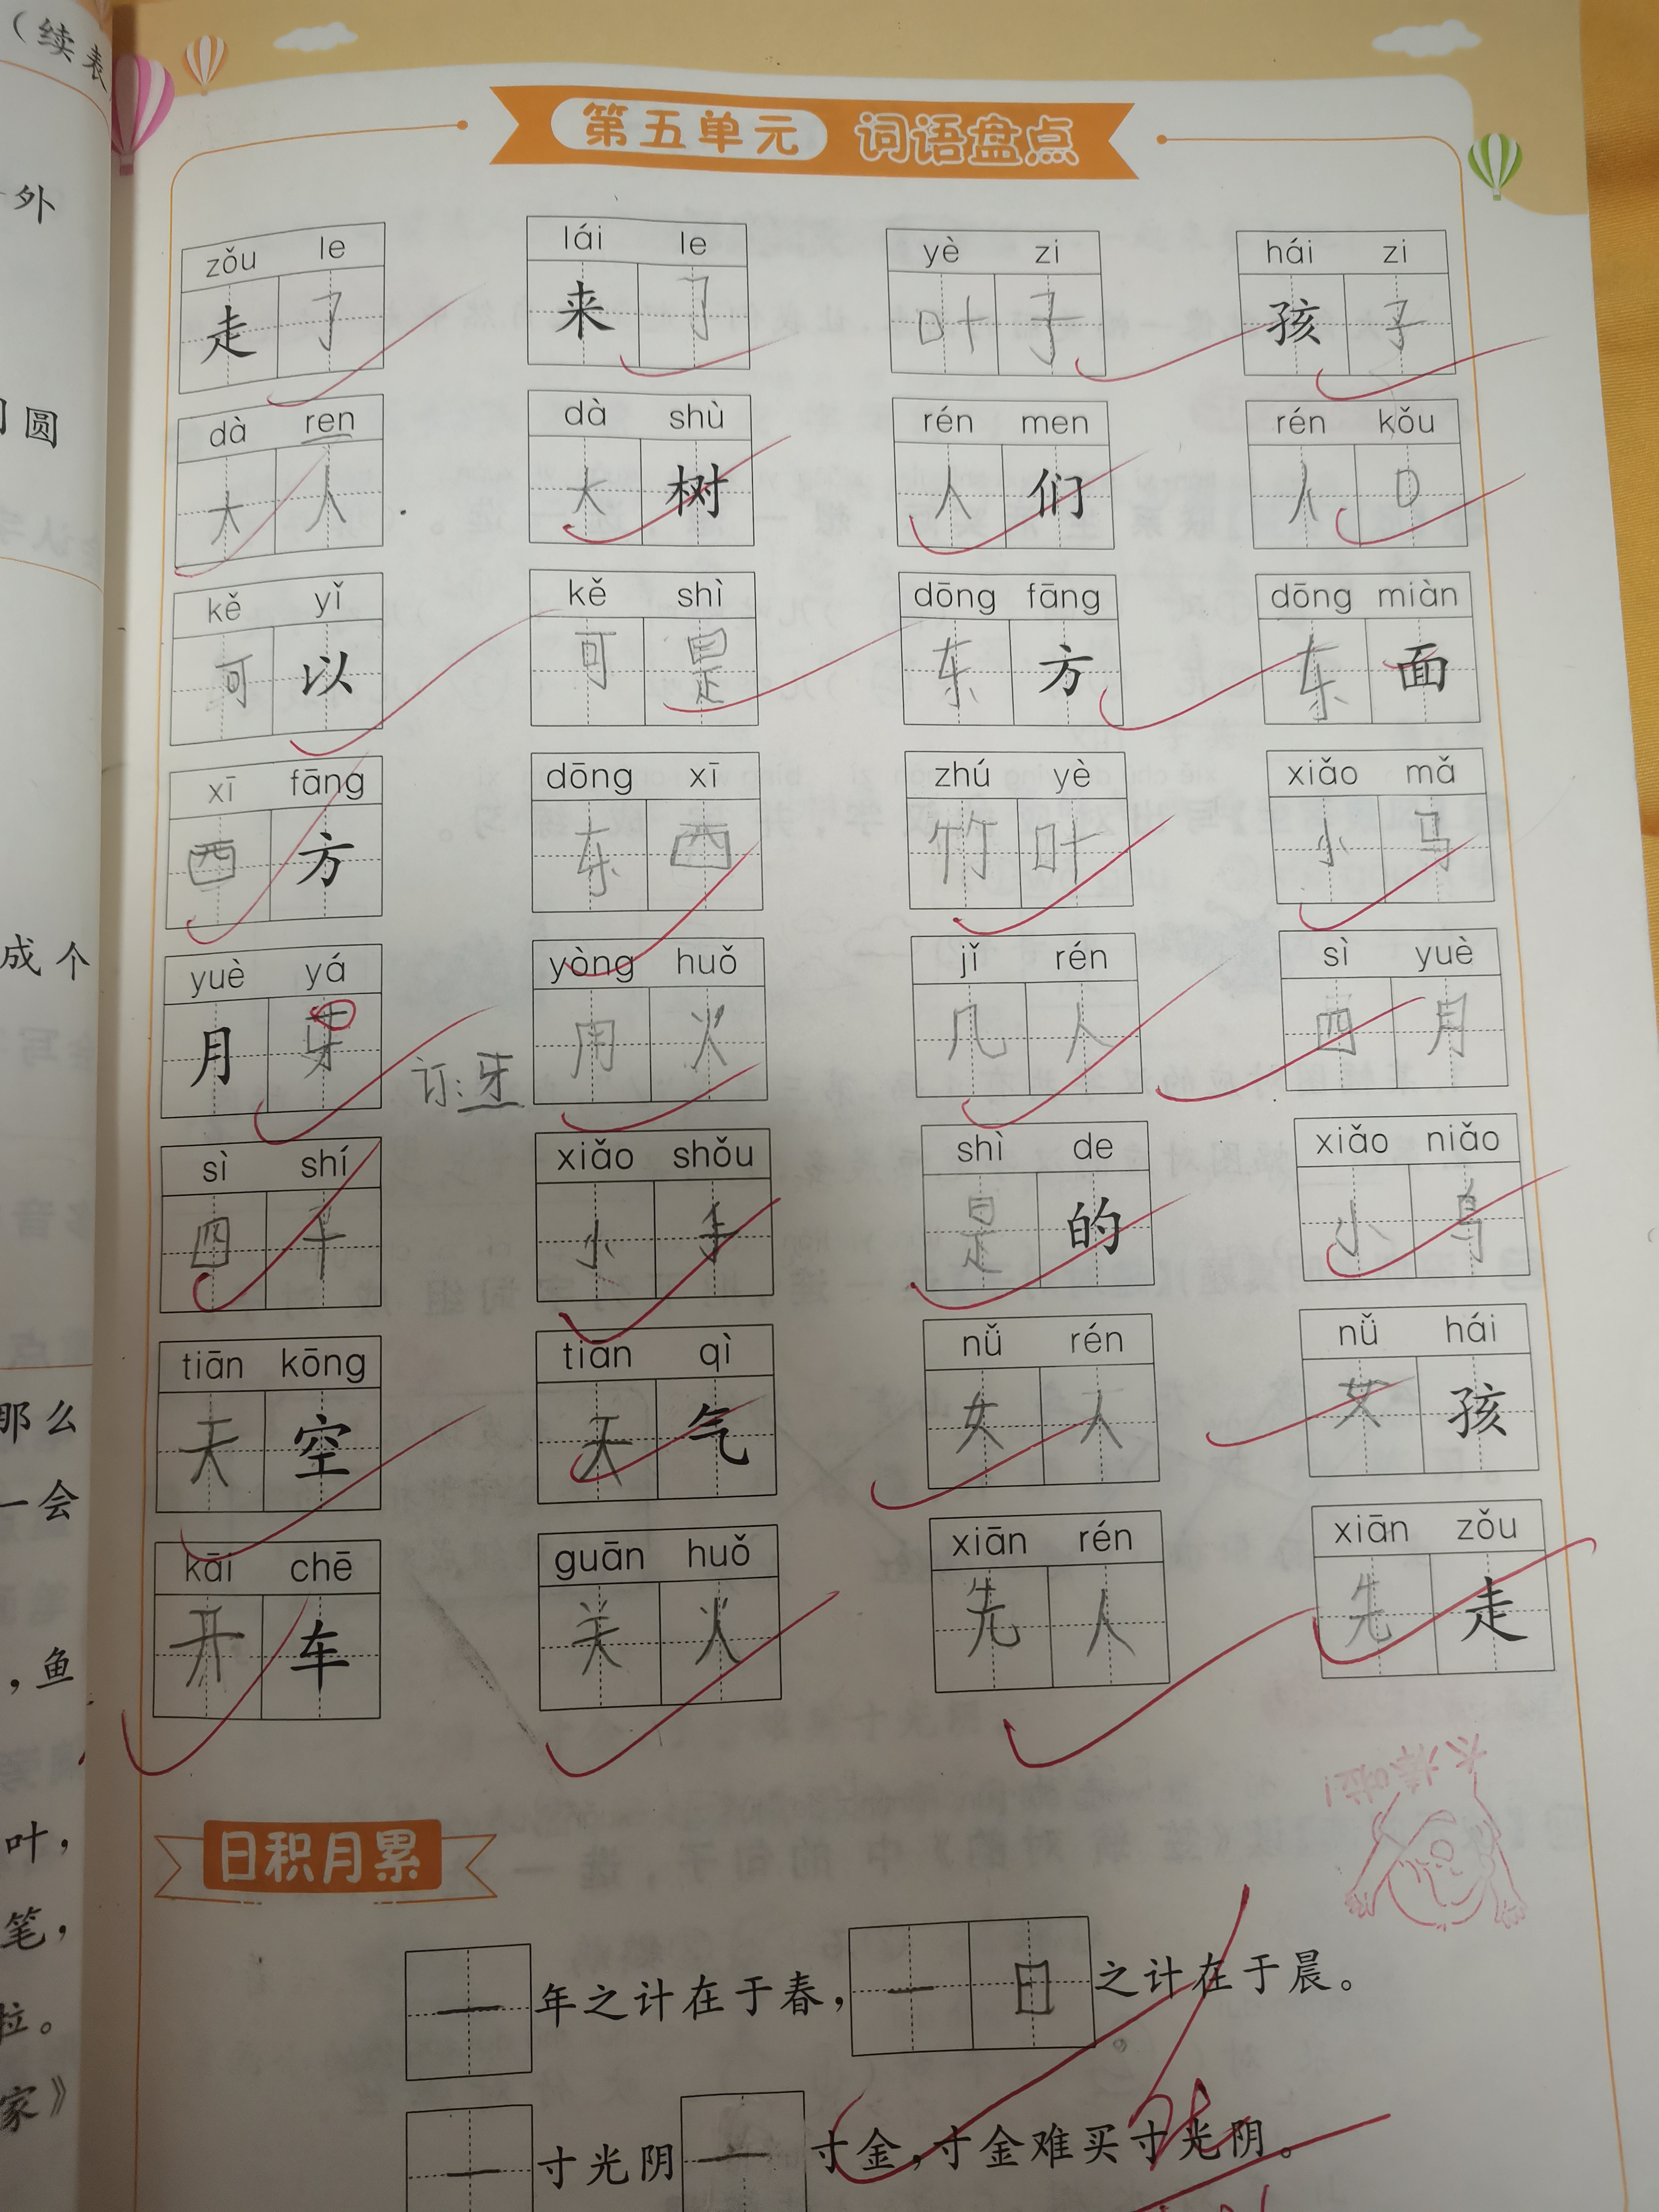 （续表
外
圆
成个
那么
一会
，鱼
叶，
笔，
拉。
家》
第五单元 词语盘点
zǒu le lái le yè zi hái zi
走了 来了 叶子 孩子
dà ren dà shù rén men rén kǒu
大人 大树 人们 人口
kě yǐ kě shì dōng fāng dōng miàn
可以 可是 东方 东面
xī fāng dōng xī zhú yè xiǎo mǎ
西方 东西 竹叶 小马
yuè yá yòng huǒ jǐ rén sì yuè
月牙 订:牙 用火 几人 四月
sì shí xiǎo shǒu shì de xiǎo niǎo
四十 小手 是的 小鸟
tiān kōng tiān qì nǚ rén nǚ hái
天空 天气 女人 女孩
kāi chē guān huǒ xiān rén xiān zǒu
开车 关火 先人 先走
太棒啦！
日积月累
一年之计在于春，一日之计在于晨。
一寸光阴一寸金，寸金难买寸光阴。